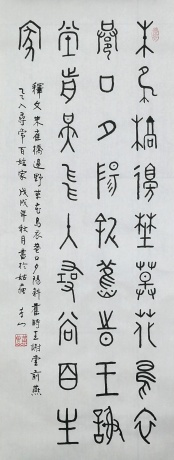 朱雀橋邊野草花烏衣
巷口夕陽斜舊時王謝
堂前燕飛入尋常百姓
家
釋文朱雀橋邊野草花烏衣巷口夕陽斜舊時王謝堂前燕
飛入尋常百姓家戊戌年秋月書於姑蘇